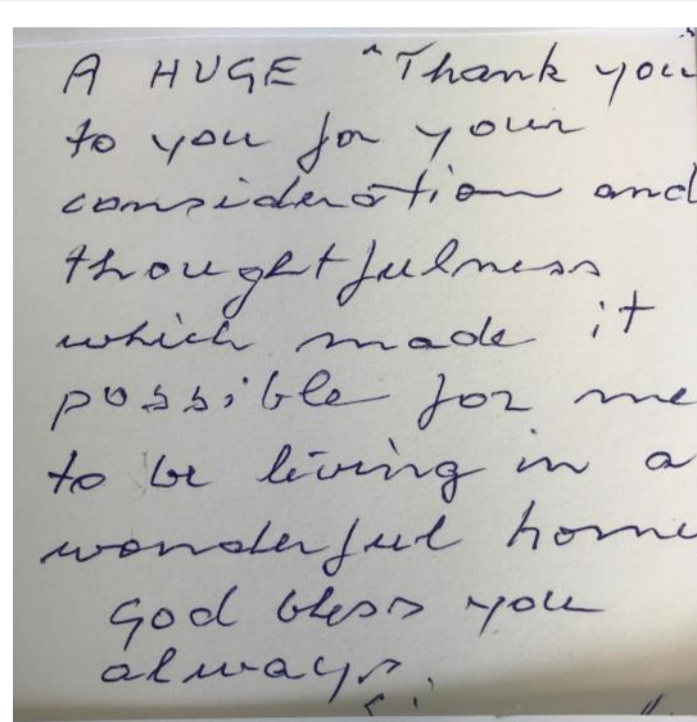 A HUGE "Thank you
to you for your
consideration and
thoughtfulness
which made it
possible for me
to be living in a
wonderful home
God bless you
always.